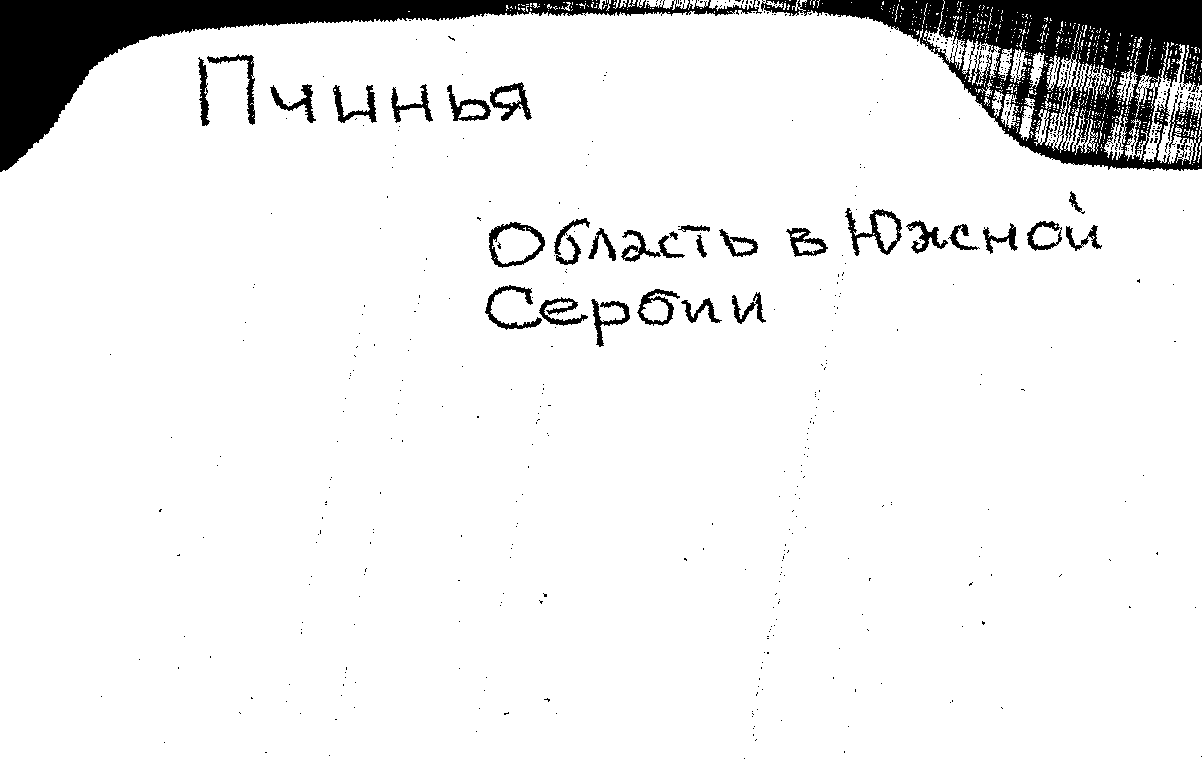 Пчинья
Область в Южной
Сербии